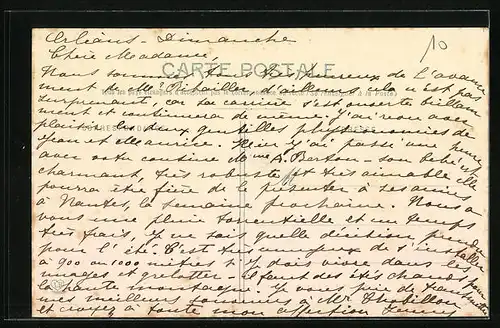 Orléans - Dimanche
CARTE POSTALE
10
Chère Madame,
Nous sommes très heureux de l'avance-
ment de Mr Thibillon, d'ailleurs cela n'est pas
surprenant, car la carrière s'est ouverte brillam-
ment et continuera de même. J'ai revu avec
plaisir les deux gentilles physionomies de
Jean et Maurice. Hier j'ai passé une heure
avec votre cousine Mme Berton - son bébé est
charmant, très robuste et très aimable elle
pourra être fière de le présenter à ses amies
à Nantes, la semaine prochaine. Nous a
vons une pluie torrentielle et un temps
très frais, je ne sais quelle décision prendre
pour l'été. C'est très ennuyeux de s'installer
à 900 ou 1000 mètres s'il y doit vivre dans les
nuages et grelotter - Il faut des étés chauds pour
la haute montagne. Je vous prie de transmettre
mes meilleurs souvenirs à Mr Thibillon
et croyez à toute mon affection